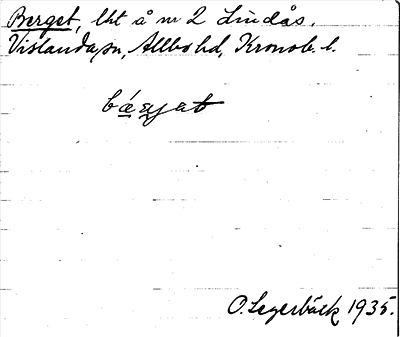 Berget, lht å nr 2 Lindås.
Vislanda sn, Allbo hd, Kronob. l.
O. Legerbäck 1935.